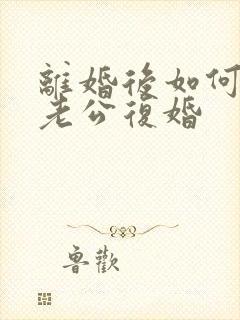 離婚後如何
老公復婚
魯歡